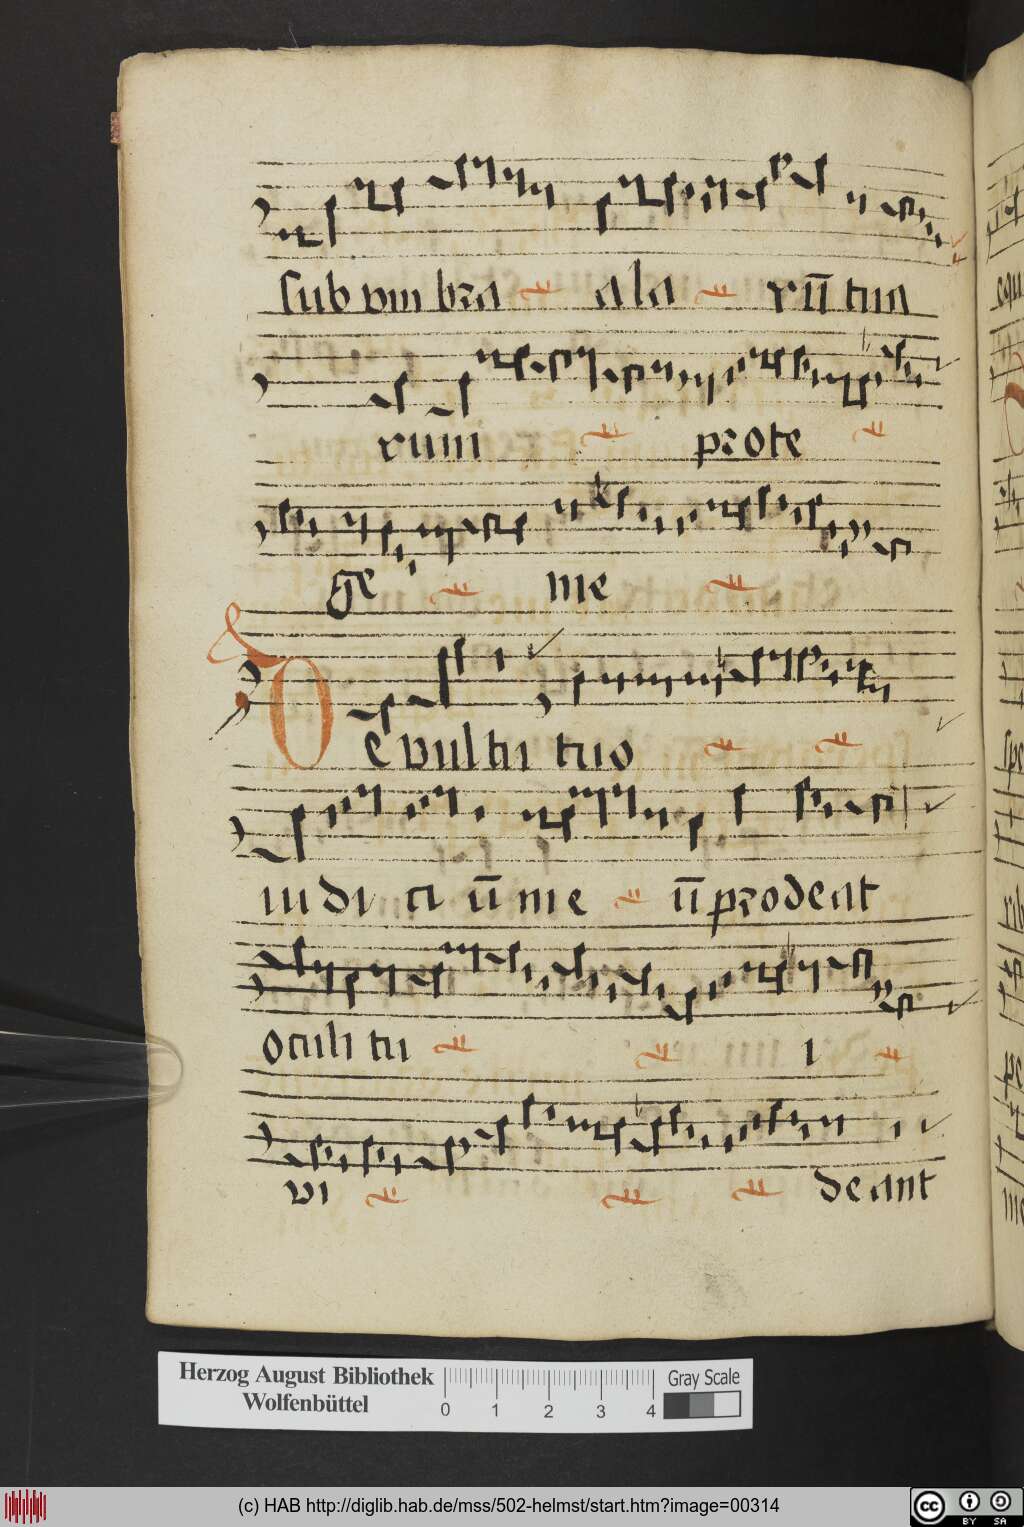 sub vm bra ala rū tua
rum prote
ge me
De vultu tuo
iudi ci ū me ū prodeat
oculi tu i
vi deant
Herzog August Bibliothek
Wolfenbüttel
0 1 2 3 4
Gray Scale
(c) HAB http://diglib.hab.de/mss/502-helmst/start.htm?image=00314
cc BY SA